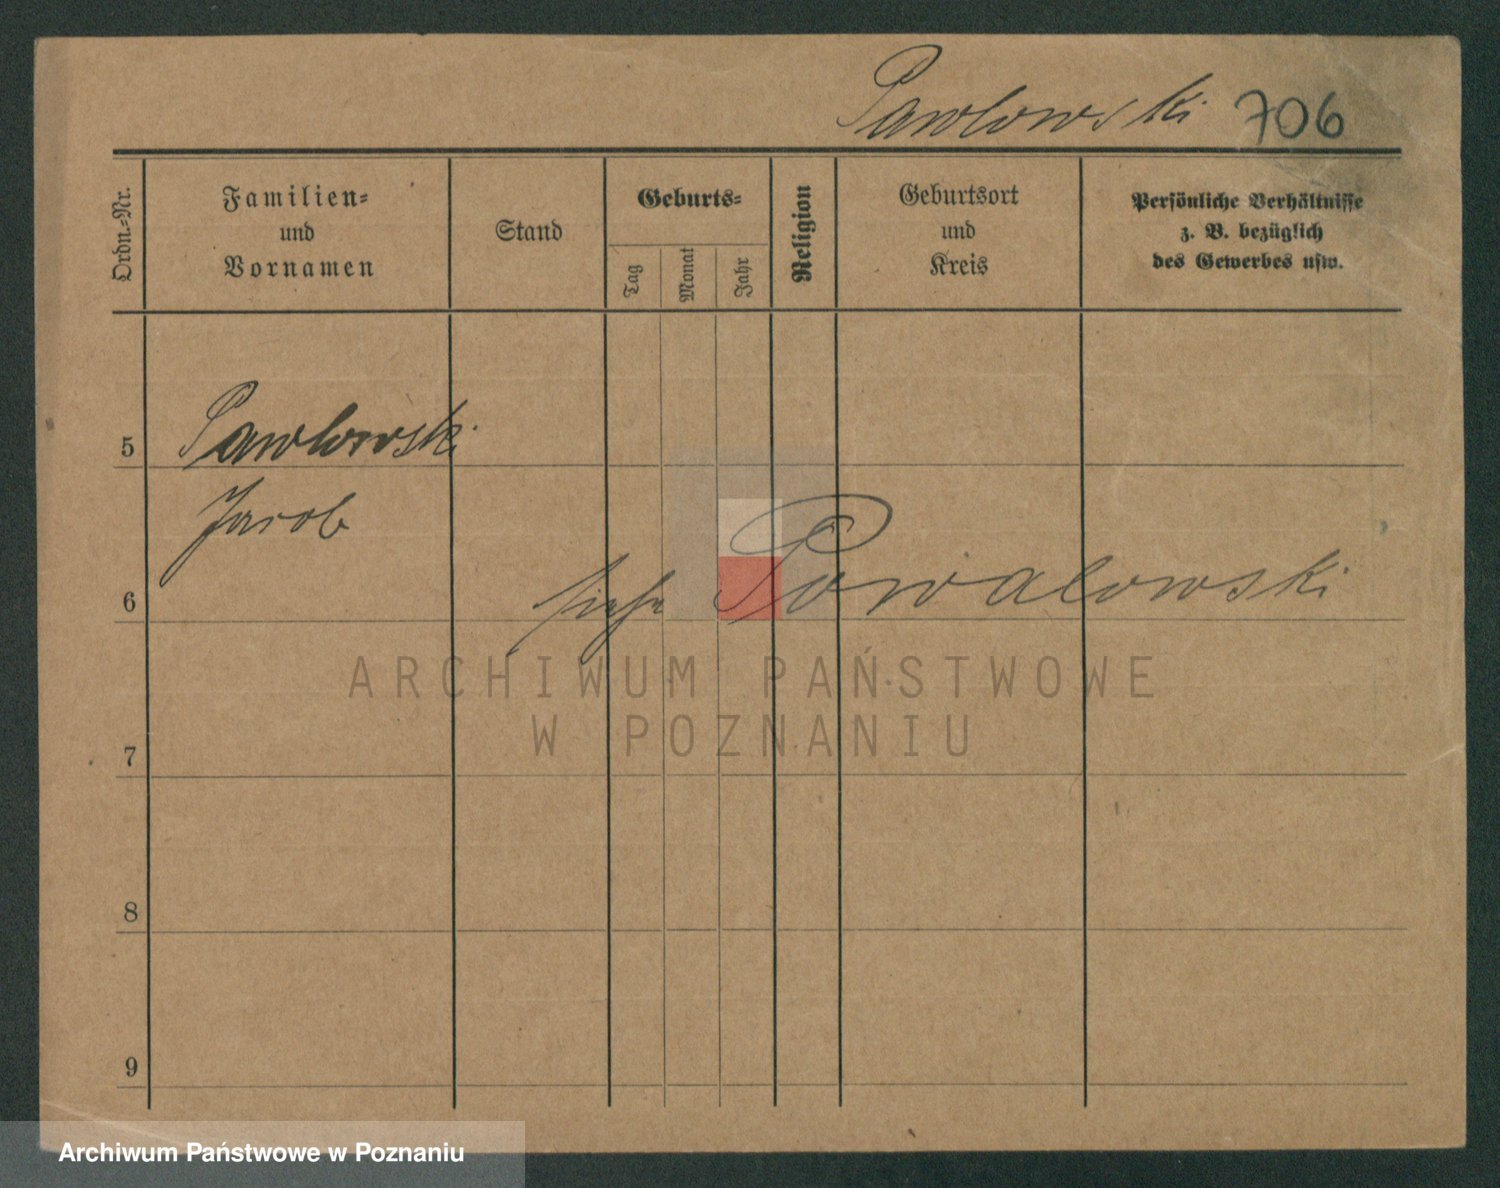 Pawlowski 706
Ordn.-Nr.
Familien-
und
Vornamen
Stand
Geburts-
Tag
Monat
Jahr
Religion
Geburtsort
und
Kreis
Persönliche Verhältnisse
z. B. bezüglich
des Gewerbes usw.
5 Pawlowski
Jacob
6 siehe Powalowski
ARCHIWUM PAŃSTWOWE
W POZNANIU
7
8
9
Archiwum Państwowe w Poznaniu